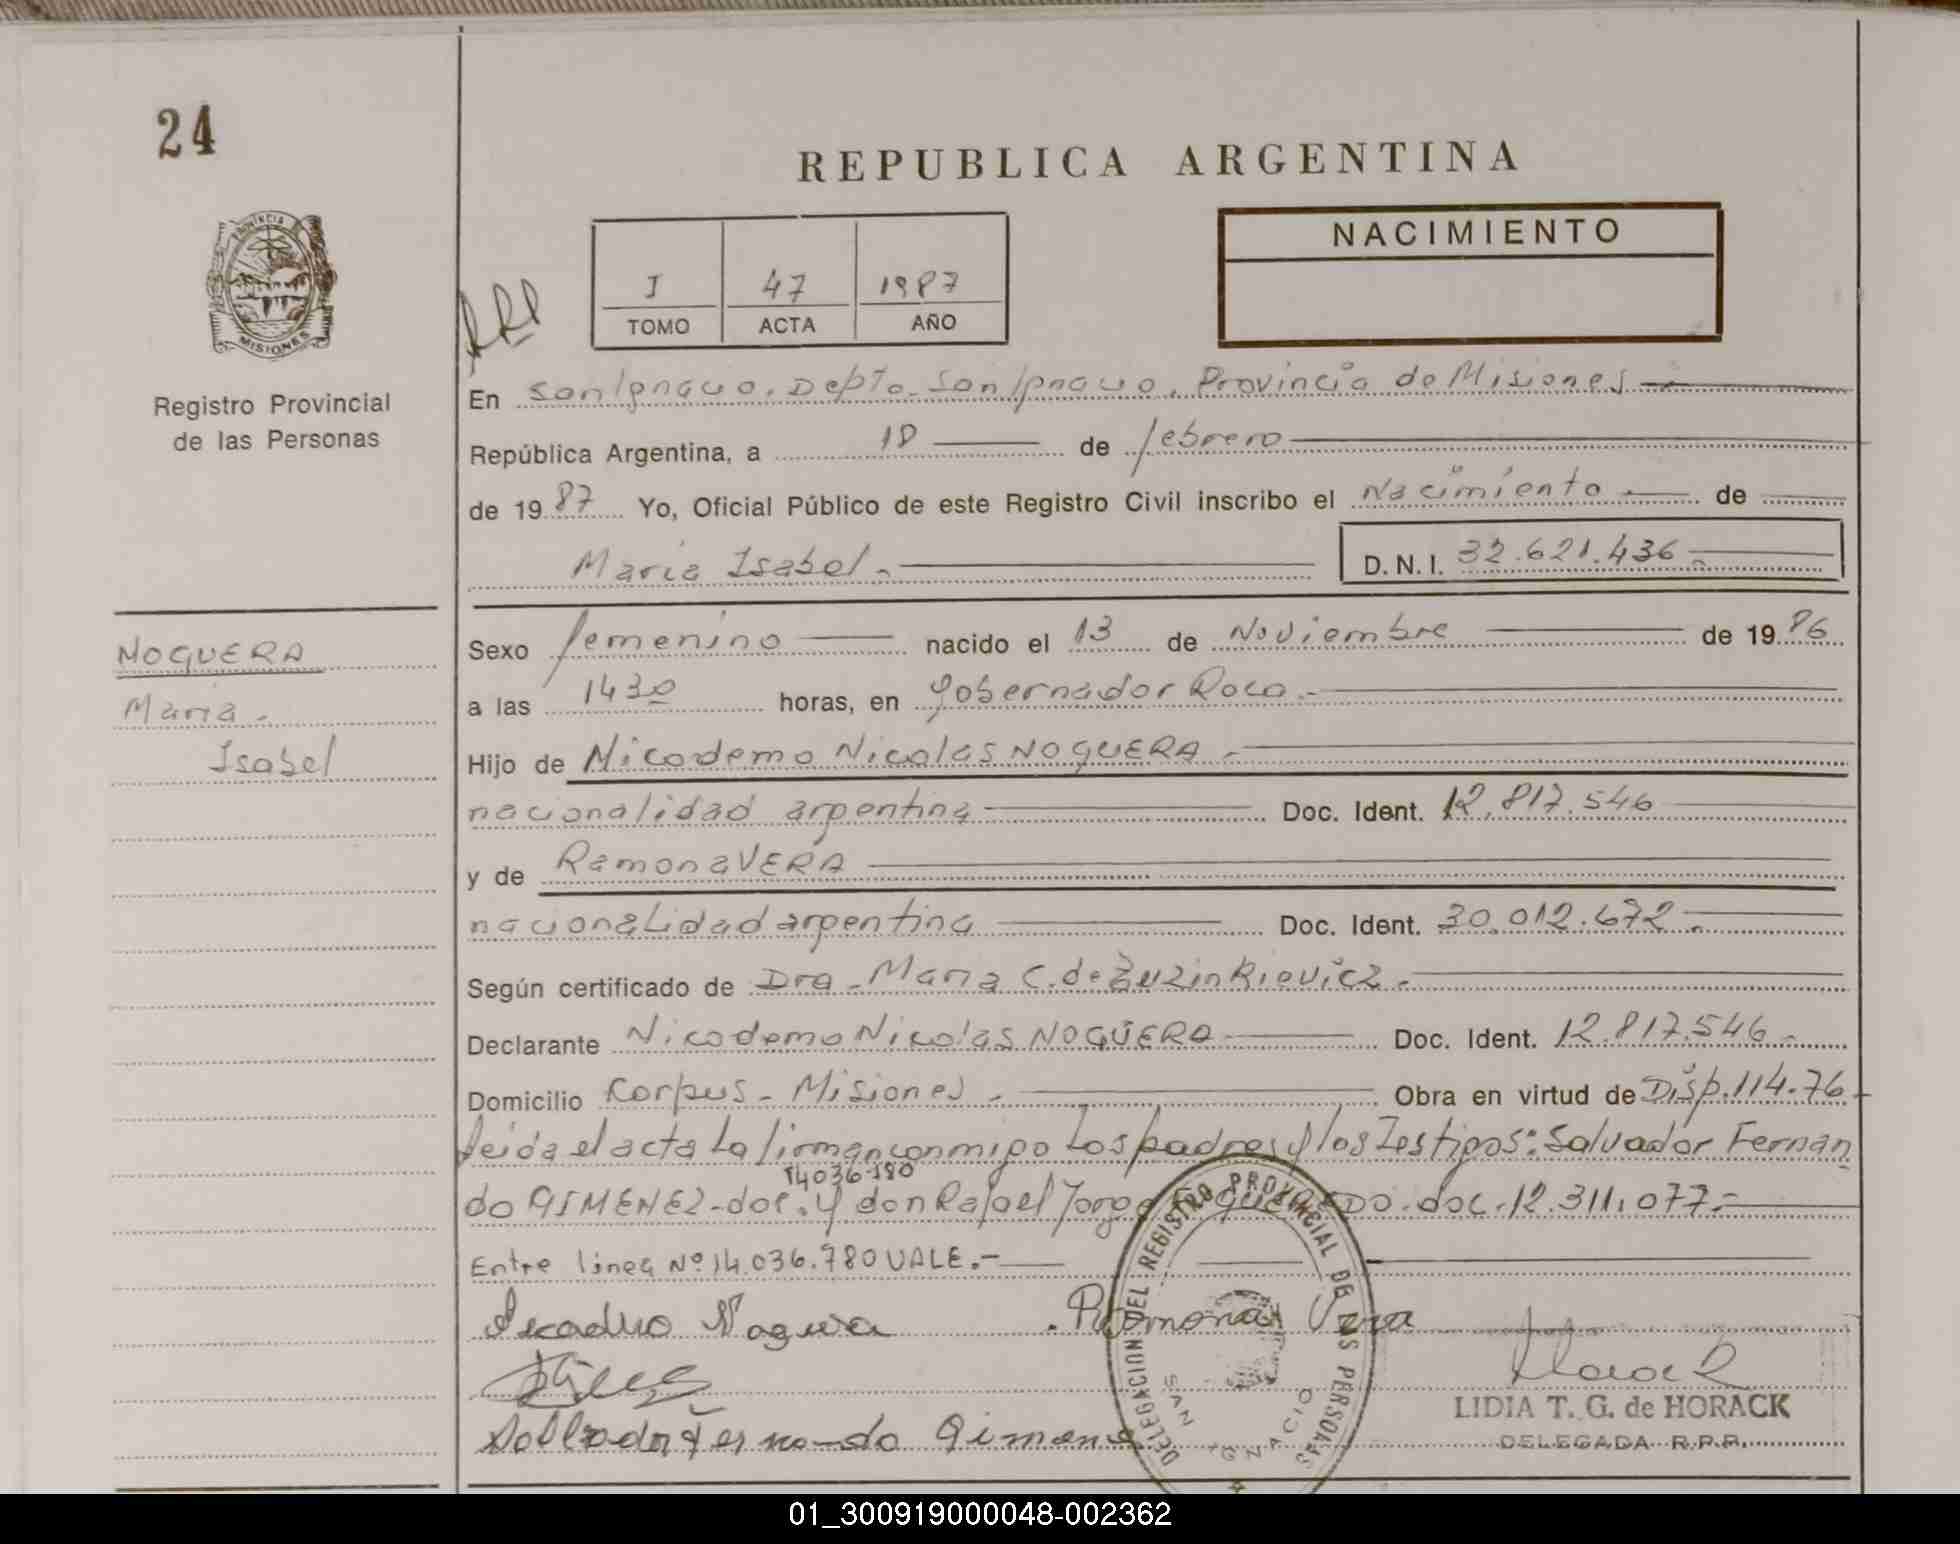 24
REPUBLICA ARGENTINA
PROVINCIA
MISIONES
Registro Provincial
de las Personas
I 47 1987
TOMO ACTA AÑO
NACIMIENTO
En San Ignacio. Depto. San Ignacio. Provincia de Misiones
República Argentina, a 18 de febrero
de 1987 Yo, Oficial Público de este Registro Civil inscribo el Nacimiento de
Maria Isabel.- D.N.I. 32.621.436
NOGUERA
Maria.
Isabel
Sexo femenino nacido el 13 de Noviembre de 1986
a las 1430 horas, en Gobernador Roca.-
Hijo de Nicodemo Nicolas NOGUERA.-
nacionalidad argentina Doc. Ident. 12.817.546
y de Ramona VERA
nacionalidad argentina Doc. Ident. 30.012.672.
Según certificado de Dra. Maria C. de Zuzinkievicz.-
Declarante Nicodemo Nicolas NOGUERA Doc. Ident. 12.817.546.-
Domicilio Corpus - Misiones. Obra en virtud de Disp. 114.76-
leida el acta la firman conmigo los padres y los Testigos: Salvador Fernan
14036780
do GIMENEZ-doc. y don Rafael Jorge doc. 12.311.077.-
Entre linea Nº 14.036.780 VALE.-
Noguera Ramona Vera
Horack
LIDIA T. G. de HORACK
DELEGADA R.P.P.
Fernando Gimenez
DELEGACION DEL REGISTRO PROVINCIAL DE LAS PERSONAS
SAN IGNACIO
01_300919000048-002362